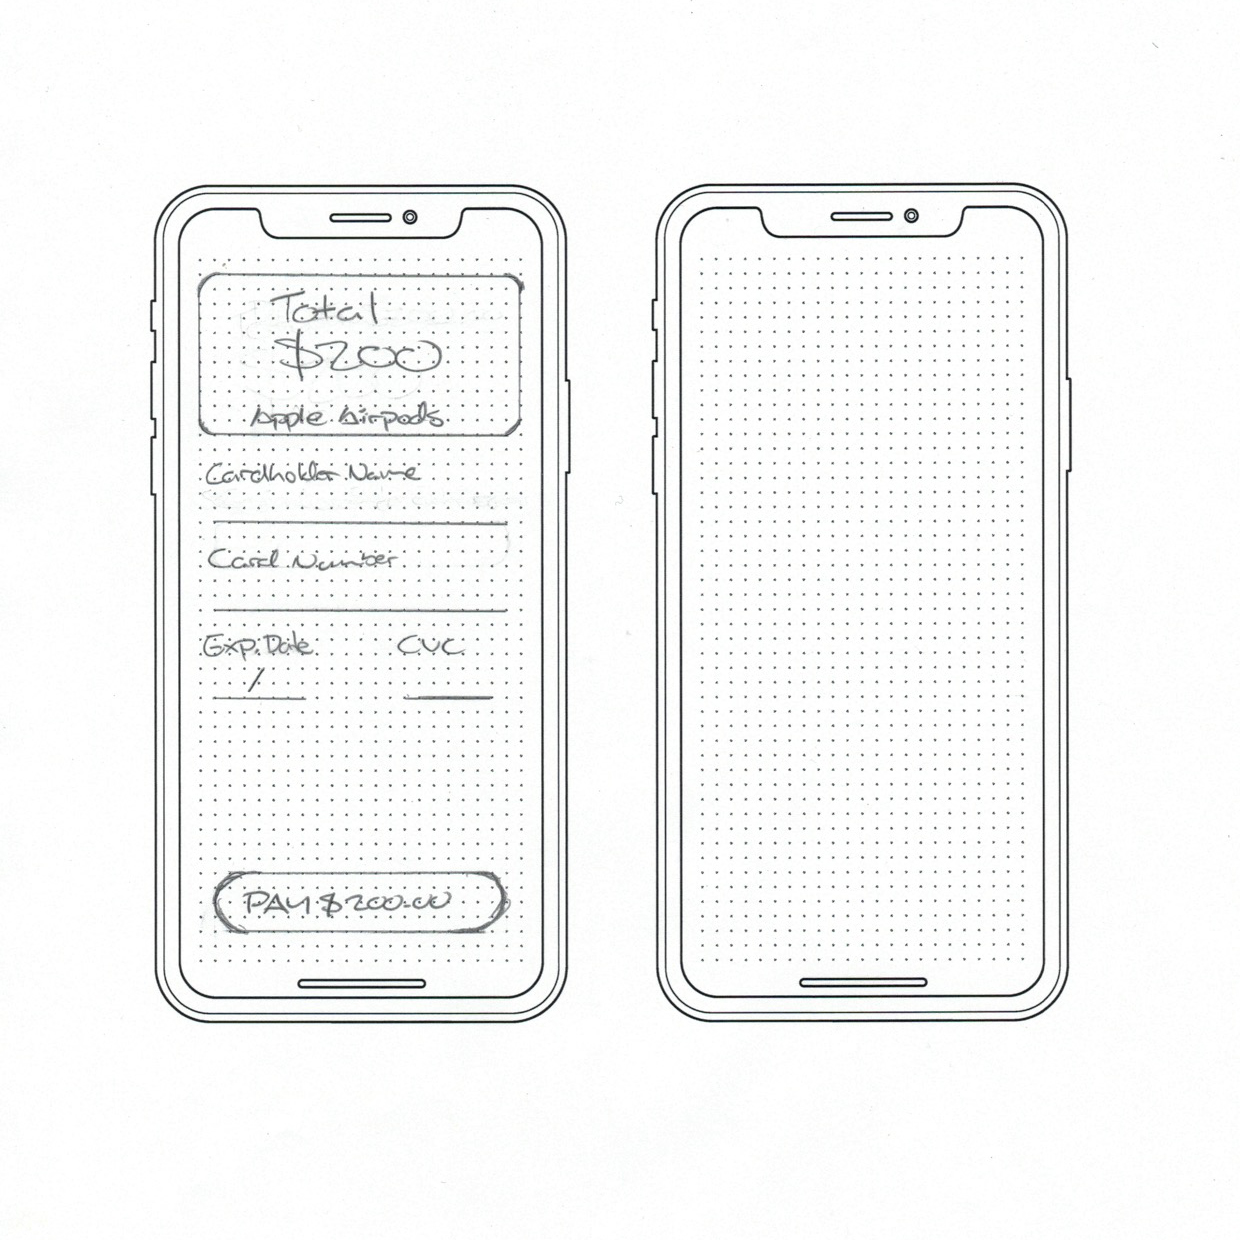 Total
$200
Apple Airpods
Cardholder Name
Card Number
Exp. Date CVC
/
PAY $200.00